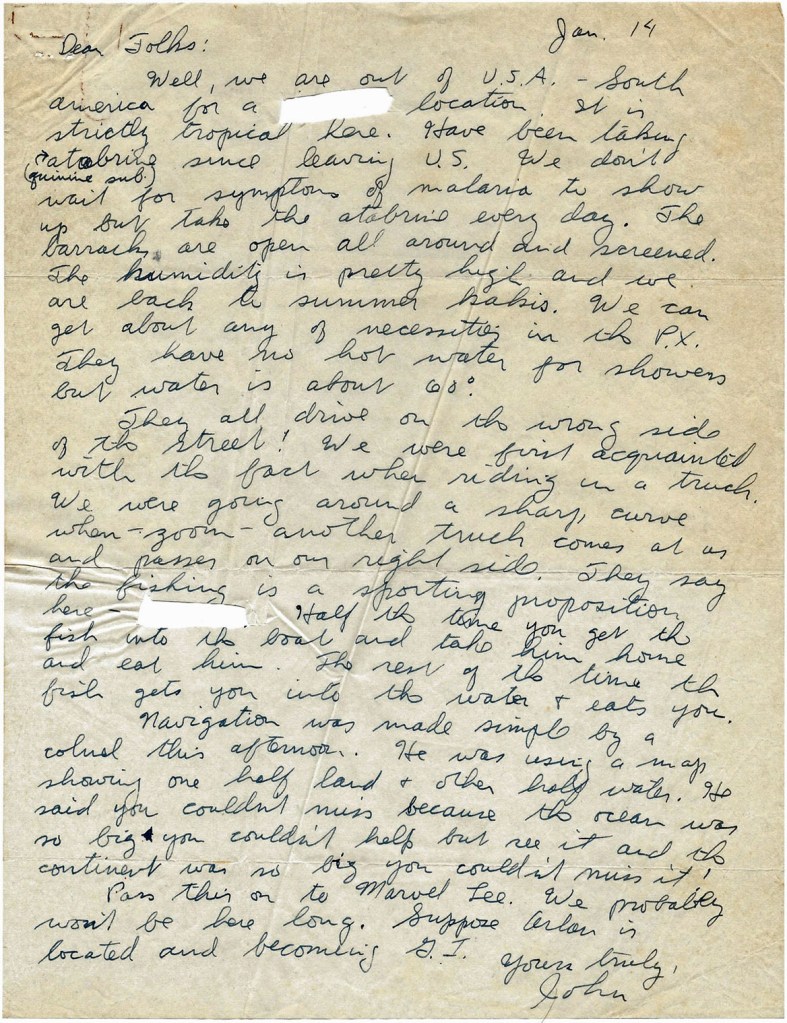 Jan. 14
Dear Folks:
Well, we are out of U.S.A. - South
america for a location. It is
strictly tropical here. Have been taking
atabrine since leaving U.S. We don't
(quinine sub.)
wait for symptoms of malaria to show
up but take the atabrine every day. The
barracks are open all around and screened.
The humidity is pretty high and we
are back to summer kakis. We can
get about any of necessities in the P.X.
They have no hot water for showers
but water is about 60°.
They all drive on the wrong side
of the street! We were first acquainted
with the fact when riding in a truck.
We were going around a sharp curve
when - zoom - another truck comes at us
and passes on our right side. They say
the fishing is a sporting proposition
here - Half the time you get the
fish into the boat and take him home
and eat him. The rest of the time the
fish gets you into the water & eats you.
Navigation was made simple by a
colnel this afternoon. He was using a map
showing one half land & other half water. He
said you couldn't miss because the ocean was
so big you couldn't help but see it and the
continent was so big you couldn't miss it!
Pass this on to Marvel Lee. We probably
won't be here long. Suppose Arlan is
located and becoming G.I.
Yours truly,
John